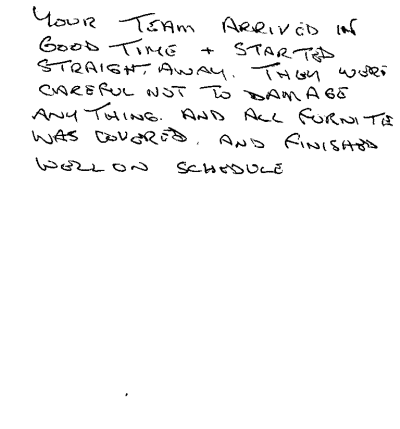 YOUR TEAM ARRIVED IN
GOOD TIME + STARTED
STRAIGHT, AWAY. THEY WERE
CAREFUL NOT TO DAMAGE
ANYTHING. AND ALL FURNITE
WAS COVERED. AND FINISHED
WELL ON SCHEDULE